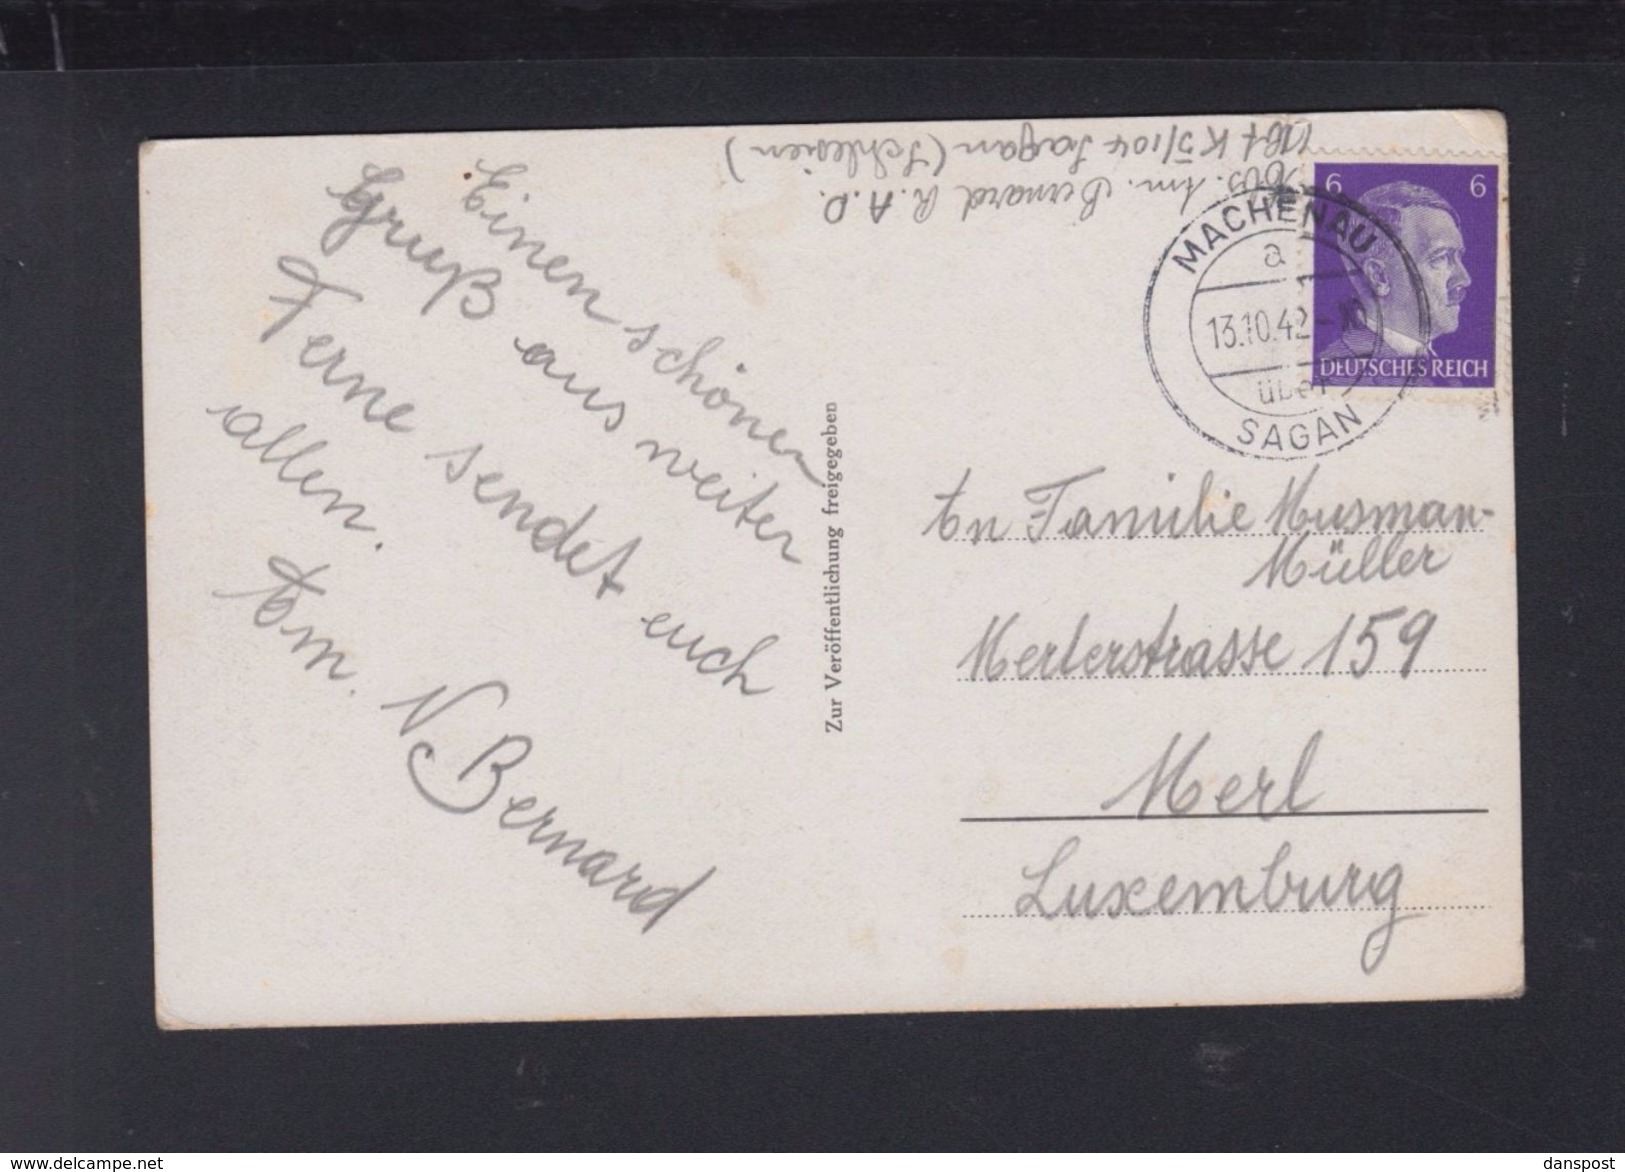 Einen schönen
Gruß aus weiter
Ferne sendet euch
allen.
Am. N. Bernard
Zur Veröffentlichung freigegeben
Am. Bernard R.A.D.
Abt K 5/104 Sagan (Schlesien)
6 6
DEUTSCHES REICH
MACHENAU
a
13.10.42-10
über
SAGAN
An Familie Musman-
Müller
Merlerstrasse 159
Merl
Luxemburg
danspost
www.delcampe.net